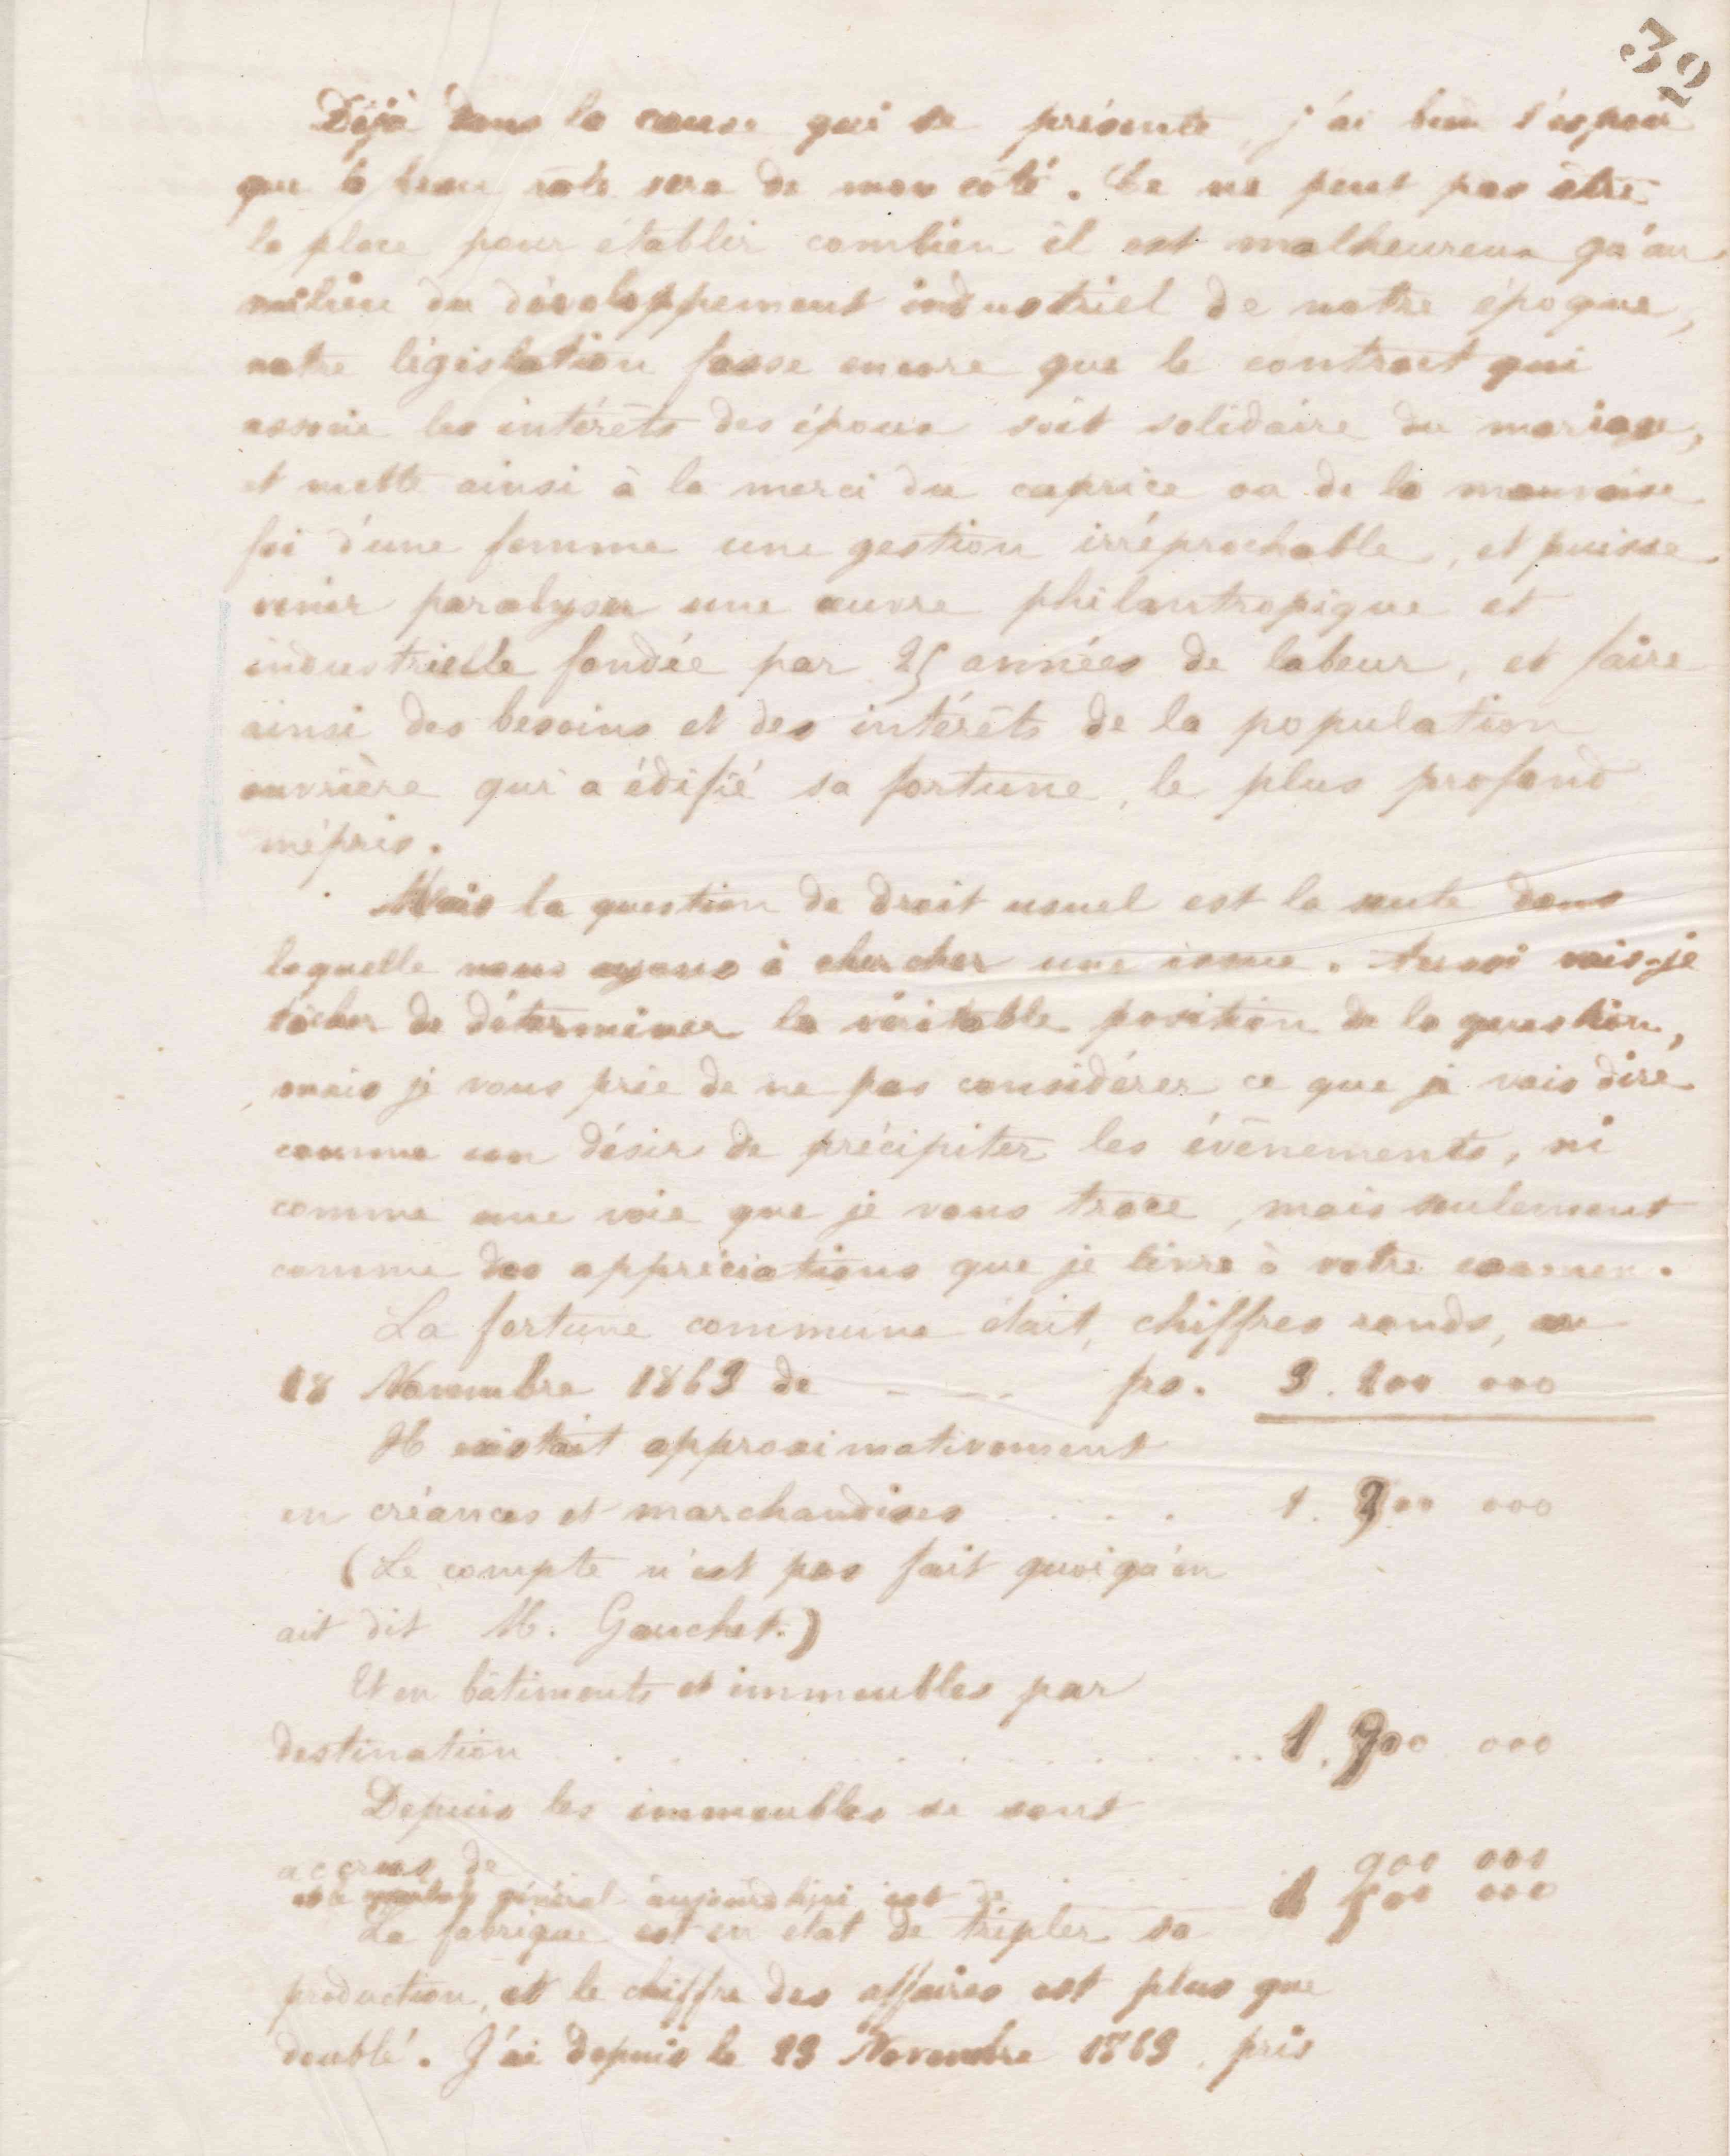 32
Déjà dans la cause qui se présente, j'ai bien l'espoir
que le beau rôle sera de mon côté. Ce ne peut pas être
la place pour établir combien il est malheureux qu'au
milieu du développement industriel de notre époque,
notre législation fasse encore que le contrat qui
associe les intérêts des époux soit solidaire du mariage,
et mette ainsi à la merci du caprice ou de la mauvaise
foi d'une femme une gestion irréprochable, et puisse
venir paralyser une œuvre philantropique et
industrielle fondée par 25 années de labeur, et faire
ainsi des besoins et des intérêts de la population
ouvrière qui a édifié sa fortune, le plus profond
mépris.
Mais la question de droit usuel est la seule dans
laquelle nous ayons à chercher une issue. Aussi vais-je
tâcher de déterminer la véritable position de la question,
mais je vous prie de ne pas considérer ce que je vais dire
comme un désir de précipiter les évènements, ni
comme une voie que je vous trace, mais seulement
comme des appréciations que je livre à votre examen.
La fortune commune était, chiffres ronds, au
18 Novembre 1863 de - - - frs. 3.200 000
Il existait approximativement
en créances et marchandises . . . . 1. 00 000
(Le compte n'est pas fait quoiqu'en
ait dit M. Gauchet.)
Et en bâtiments et immeubles par
destination . . . . . . . . . . 1. 00 000
Depuis les immeubles se sont
accrus de . . . 900 000
et le général aujourd'hui est de 500 000
La fabrique est en état de tripler sa
production, et le chiffre des affaires est plus que
doublé. J'ai depuis le 23 Novembre 1863, pris